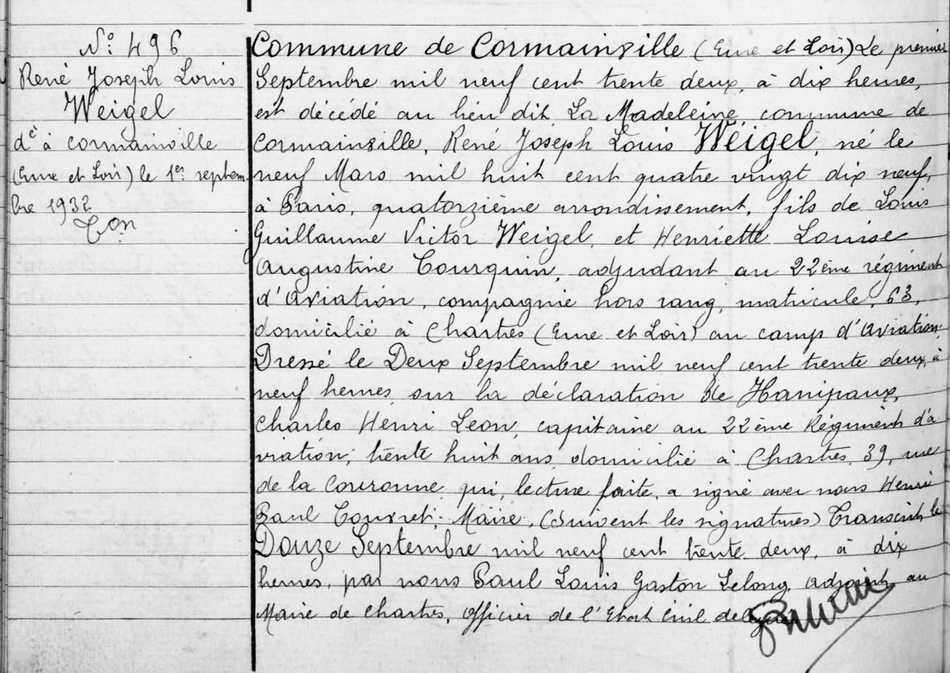 N° 496
René Joseph Louis
Weigel
dé à Cormainville
(Eure et Loir) le 1er septem
bre 1932
Commune de Cormainville (Eure et Loir) Le premier
Septembre mil neuf cent trente deux, à dix heures,
est décédé au lieu dit, La Madeleine, commune de
Cormainville, René Joseph Louis Weigel, né le
neuf Mars mil huit cent quatre vingt dix neuf,
à Paris, quatorzième arrondissement, fils de Louis
Guillaume Victor Weigel, et Henriette Louise
Augustine Courquin, adjudant au 22ème régiment
d'Aviation, compagnie hors rang, matricule, 63,
domicilié à Chartres (Eure et Loir) au camp d'Aviation
Dressé le Deux Septembre mil neuf cent trente deux, à
neuf heures, sur la déclaration de
Charles Henri Leon, capitaine au 22ème Régiment d'a
viation, trente huit ans, domicilié à Chartres, 39, rue
de la Couronne, qui, lecture faite, a signé avec nous Henri
Paul Maire, (Suivent les signatures) Transcrit le
Douze Septembre mil neuf cent trente deux, à dix
heures, par nous Paul Louis Gaston Lelong, adjoint au
Maire de Chartres, Officier de l'Etat Civil